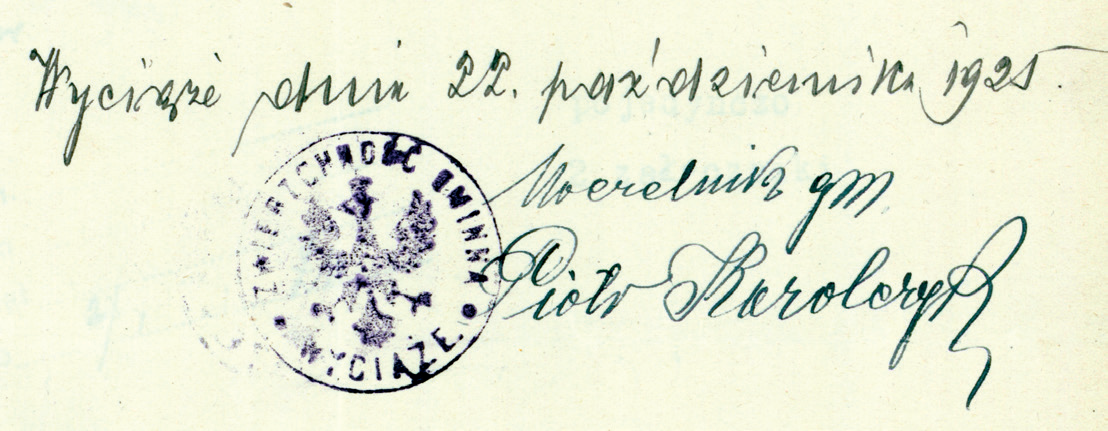 Wyciąże dnia 22. października 1925
Naczelnik gm.
Piotr Karolczyk
ZWIERZCHNOŚĆ GMINNA
WYCIĄŻE